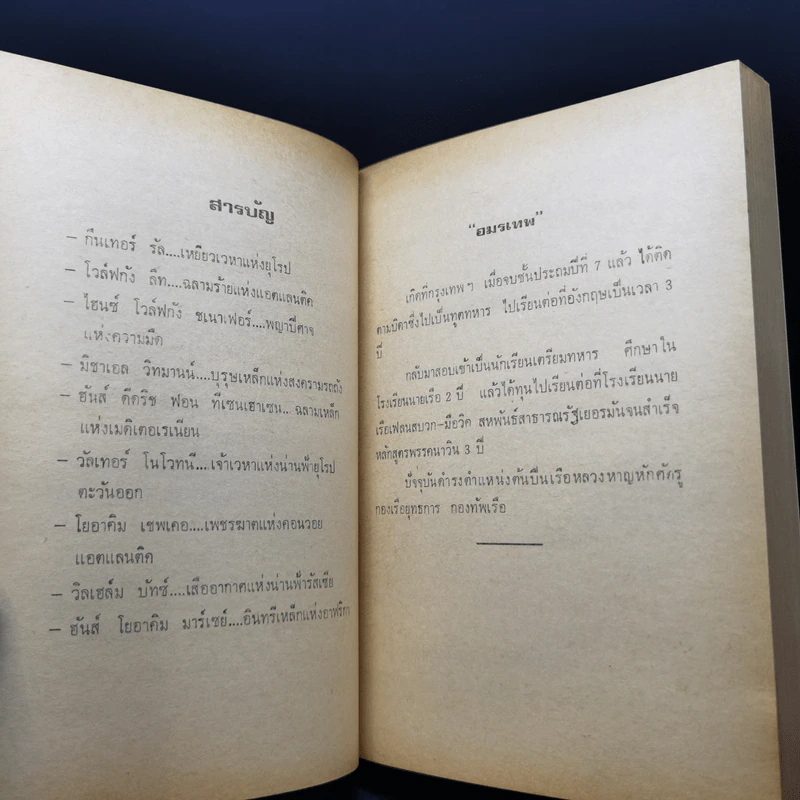 สารบัญ
– กึนเทอร์ รัล....เหยี่ยวเวหาแห่งยุโรป
– โวล์ฟกัง ลึท....ฉลามร้ายแห่งแอตแลนติค
– ไฮนซ์ โวล์ฟกัง ชเนาเฟอร์....พญาปีศาจ
แห่งความมืด
– มิชาเอล วิทมานน์....บุรุษเหล็กแห่งสงครามรถถัง
– ฮันส์ ดีดริช ฟอน ทีเซนเฮาเซน... ฉลามเหล็ก
แห่งเมดิเตอเรเนียน
– วัลเทอร์ โนโวทนี....เจ้าเวหาแห่งน่านฟ้ายุโรป
ตะวันออก
– โยอาคิม เชพเคอ....เพชรฆาตแห่งคอนวอย
แอตแลนติค
– วิลเฮล์ม บัทซ์....เสืออากาศแห่งน่านฟ้ารัสเซีย
– ฮันส์ โยอาคิม มาร์เซย์....อินทรีเหล็กแห่งอาฟริกา
"อมรเทพ"
เกิดที่กรุงเทพฯ เมื่อจบชั้นประถมปีที่ 7 แล้ว ได้ติด
ตามบิดาซึ่งไปเป็นทูตทหาร ไปเรียนต่อที่อังกฤษเป็นเวลา 3
ปี
กลับมาสอบเข้าเป็นนักเรียนเตรียมทหาร ศึกษาใน
โรงเรียนนายเรือ 2 ปี แล้วได้ทุนไปเรียนต่อที่โรงเรียนนาย
เรือเฟลนสบวก-มือวิค สหพันธ์สาธารณรัฐเยอรมันจนสำเร็จ
หลักสูตรพรรคนาวิน 3 ปี
ปัจจุบันดำรงตำแหน่งต้นปืนเรือหลวงหาญหักศัตรู
กองเรือยุทธการ กองทัพเรือ